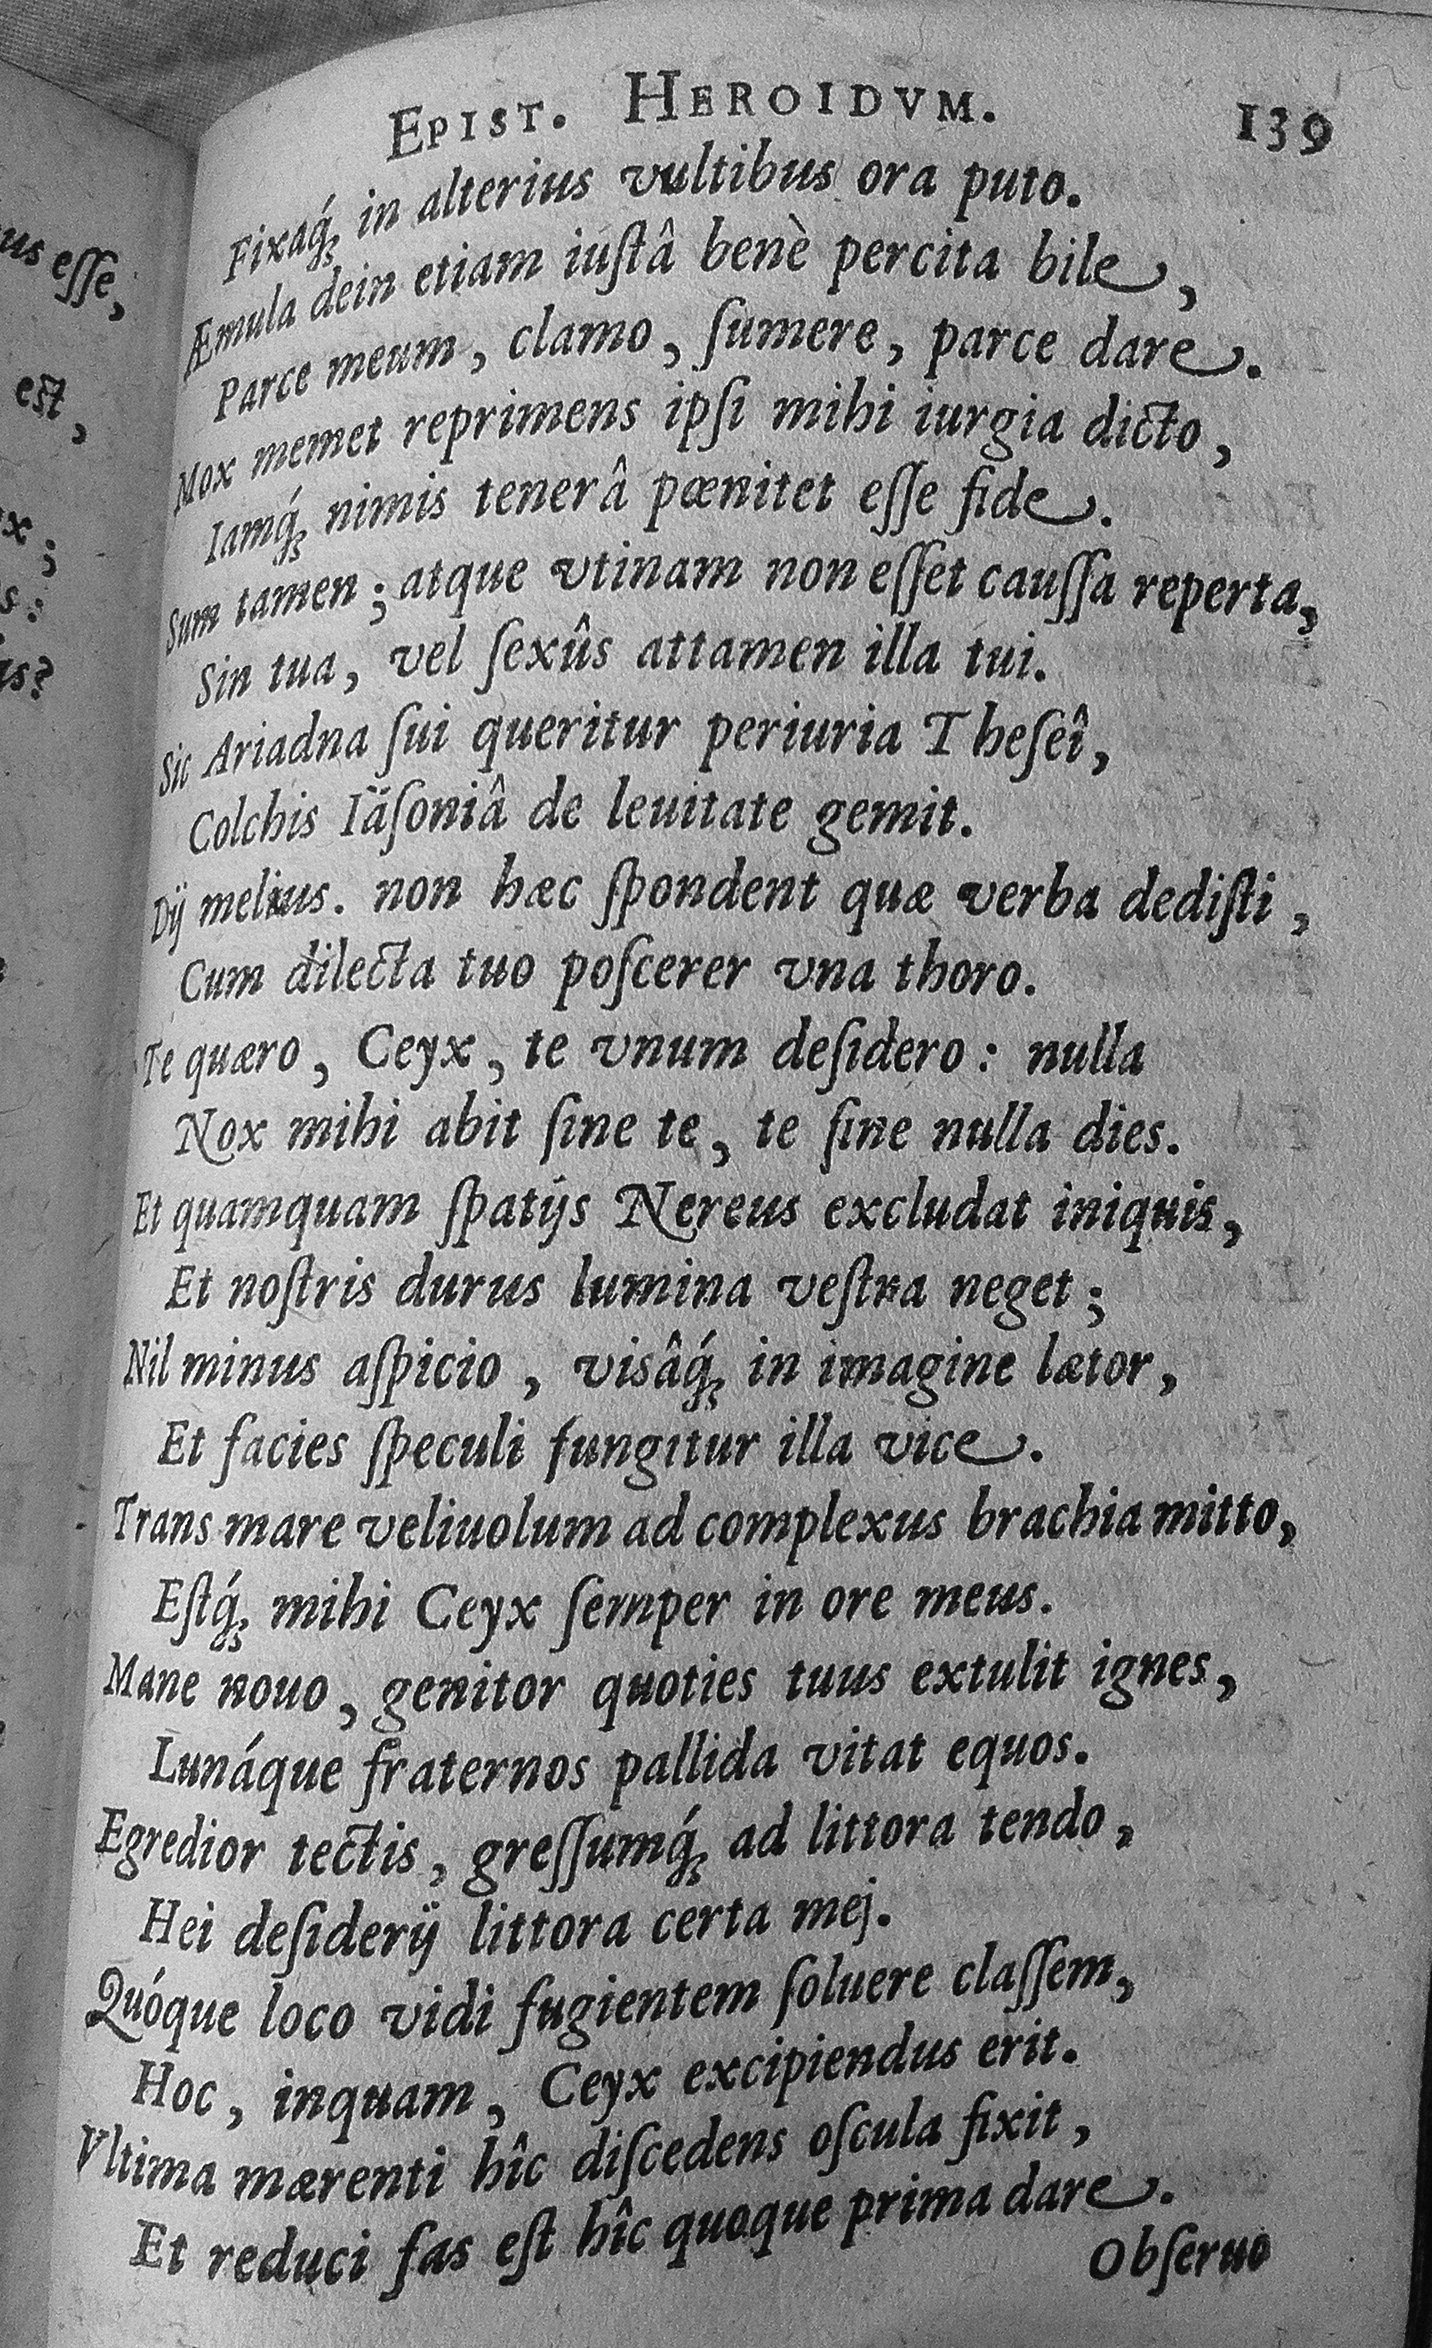 EPIST. HEROIDVM. 139
us esse,
Fixaq́; in alterius vultibus ora puto.
Æmula dein etiam iustâ benè percita bile,
Parce meum, clamo, sumere, parce dare.
est,
Mox memet reprimens ipsi mihi iurgia dicto,
Iamq́; nimis tenerâ pœnitet esse fide.
Sum tamen; atque vtinam non esset caussa reperta,
Sin tua, vel sexûs attamen illa tui.
Sic Ariadna sui queritur periuria Theseî,
Colchis Iäsoniâ de leuitate gemit.
Dij melius. non hæc spondent quæ verba dedisti,
Cum dilecta tuo poscerer vna thoro.
Te quæro, Ceyx, te vnum desidero: nulla
Nox mihi abit sine te, te sine nulla dies.
Et quamquam spatijs Nereus excludat iniquis,
Et nostris durus lumina vestra neget;
Nil minus aspicio, visâq́; in imagine lætor,
Et facies speculi fungitur illa vice.
Trans mare veliuolum ad complexus brachia mitto,
Estq́; mihi Ceyx semper in ore meus.
Mane nouo, genitor quoties tuus extulit ignes,
Lunáque fraternos pallida vitat equos.
Egredior tectis, gressumq́; ad littora tendo,
Hei desiderij littora certa mej.
Quóque loco vidi fugientem soluere classem,
Hoc, inquam, Ceyx excipiendus erit.
Vltima mærenti hîc discedens oscula fixit,
Et reduci fas est hîc quoque prima dare.
Obseruo